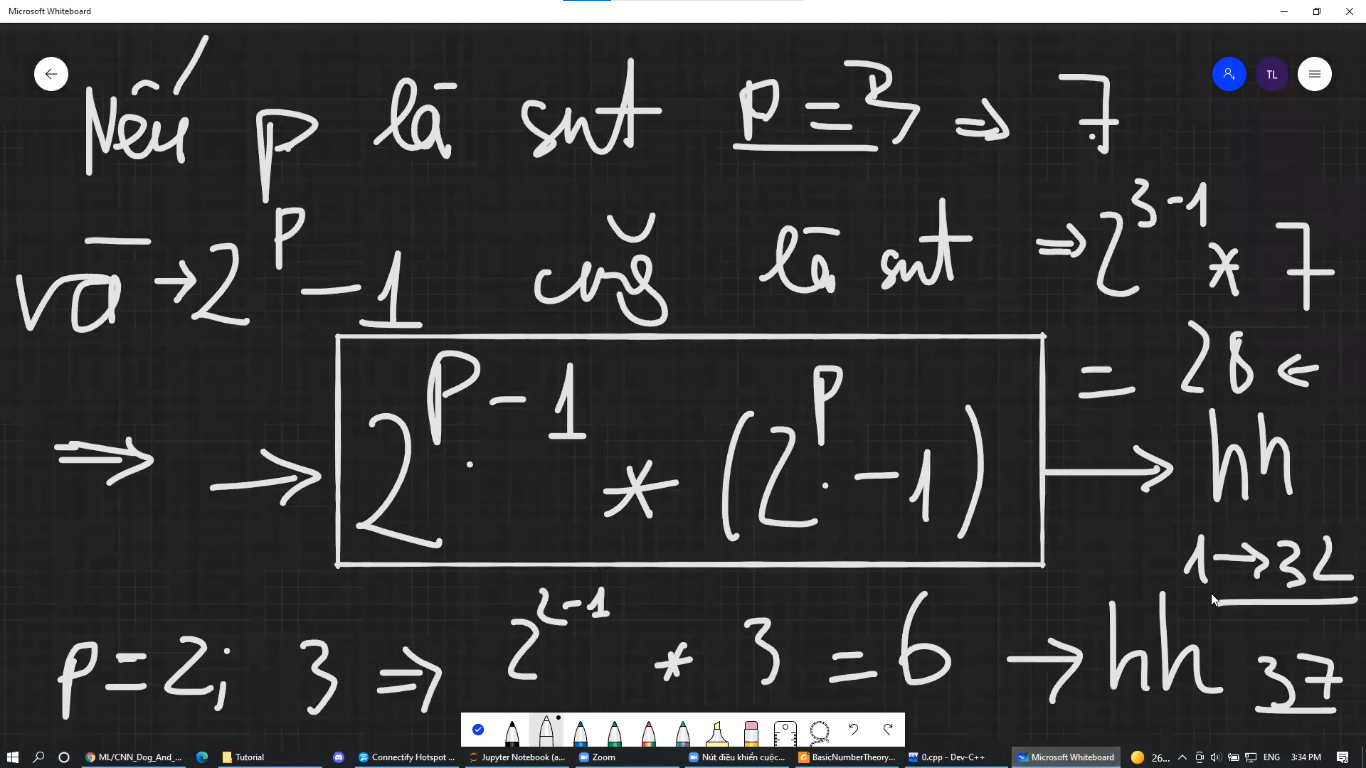 Microsoft Whiteboard
TL
Nếu p là snt p = 3 ⇒ 7
và → 2^p - 1 cũg là snt ⇒ 2^3-1 * 7
= 28 ←
⇒ → 2^p-1 * (2^p - 1) → hh
1 → 32
p = 2; 3 ⇒ 2^2-1 * 3 = 6 → hh 37
ML/CNN_Dog_And_...
Tutorial
Connectify Hotspot ...
Jupyter Notebook (a...
Zoom
Nút điều khiển cuộc...
BasicNumberTheory...
0.cpp - Dev-C++
Microsoft Whiteboard
26...
ENG
3:34 PM